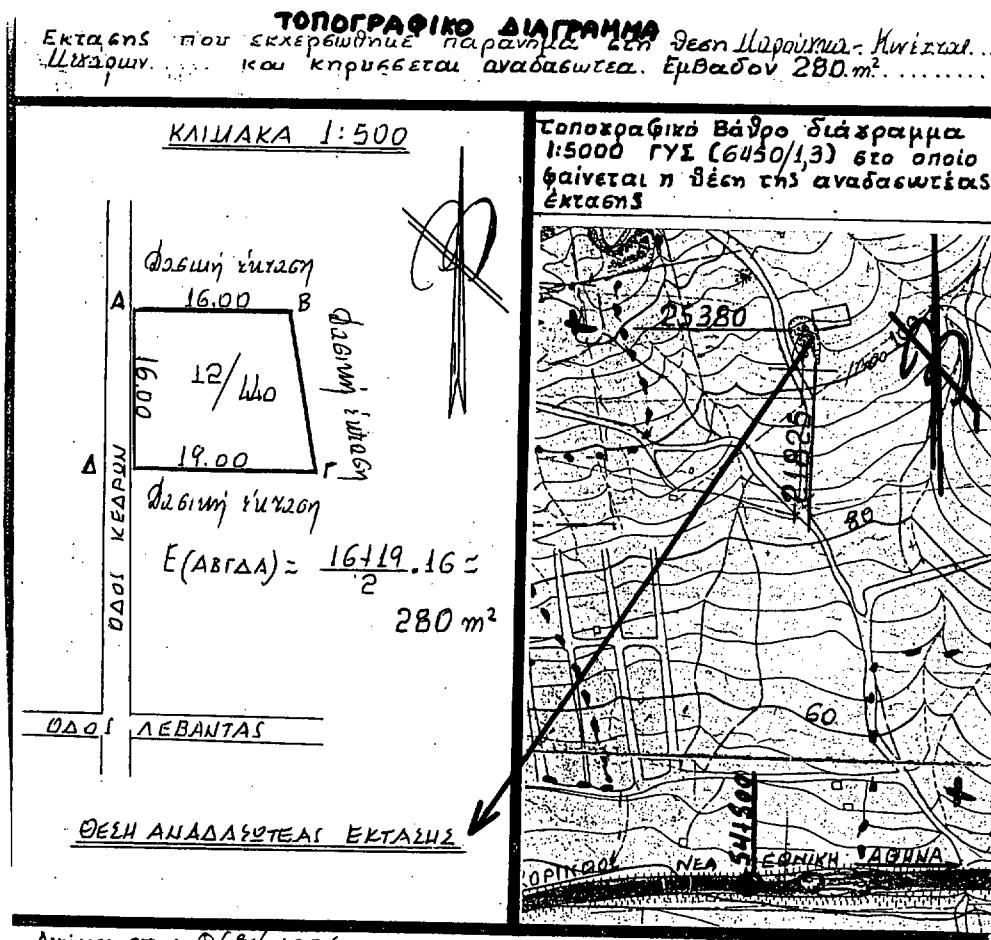 ΤΟΠΟΓΡΑΦΙΚΟ ΔΙΑΓΡΑΜΜΑ
Εκτασης που εκχερσωθηκε παρανομα στη θεση Μαρούγκα - Κινέττας..
Μεγαρων..... και κηρυσσεται αναδασωτεα. Εμβαδον 280 m².........
ΚΛΙΜΑΚΑ 1:500
Δασική έκταση
Α 16.00 Β
16.00
12/440
Δασική έκταση
Δ 19.00 Γ
Δασική έκταση
ΟΔΟΣ ΚΕΔΡΩΝ
Ε(ΑΒΓΔΑ) = 16+19/2 . 16 =
280 m²
ΟΔΟΣ ΛΕΒΑΝΤΑΣ
ΘΕΣΗ ΑΝΑΔΑΣΩΤΕΑΣ ΕΚΤΑΣΗΣ
Τοπογραφικό Βάθρο διάγραμμα
1:5000 ΓΥΣ (6450/1,3) στο οποίο
φαίνεται η θέση της αναδασωτέας
έκτασης
25380
21825
80
60
54+500
ΝΕΑ ΕΘΝΙΚΗ ΑΘΗΝΑ